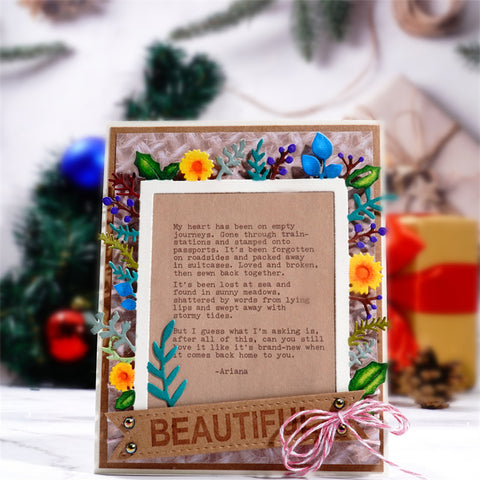 My heart has been on empty
journeys. Gone through train-
stations and stamped onto
passports. It's been forgotten
on roadsides and packed away
in suitcases. Loved and broken,
then sewn back together.
It's been lost at sea and
found in sunny meadows,
shattered by words from lying
lips and swept away with
stormy tides.
But I guess what I'm asking is,
after all of this, can you still
love it like it's brand-new when
it comes back home to you.
-Ariana
BEAUTIFUL